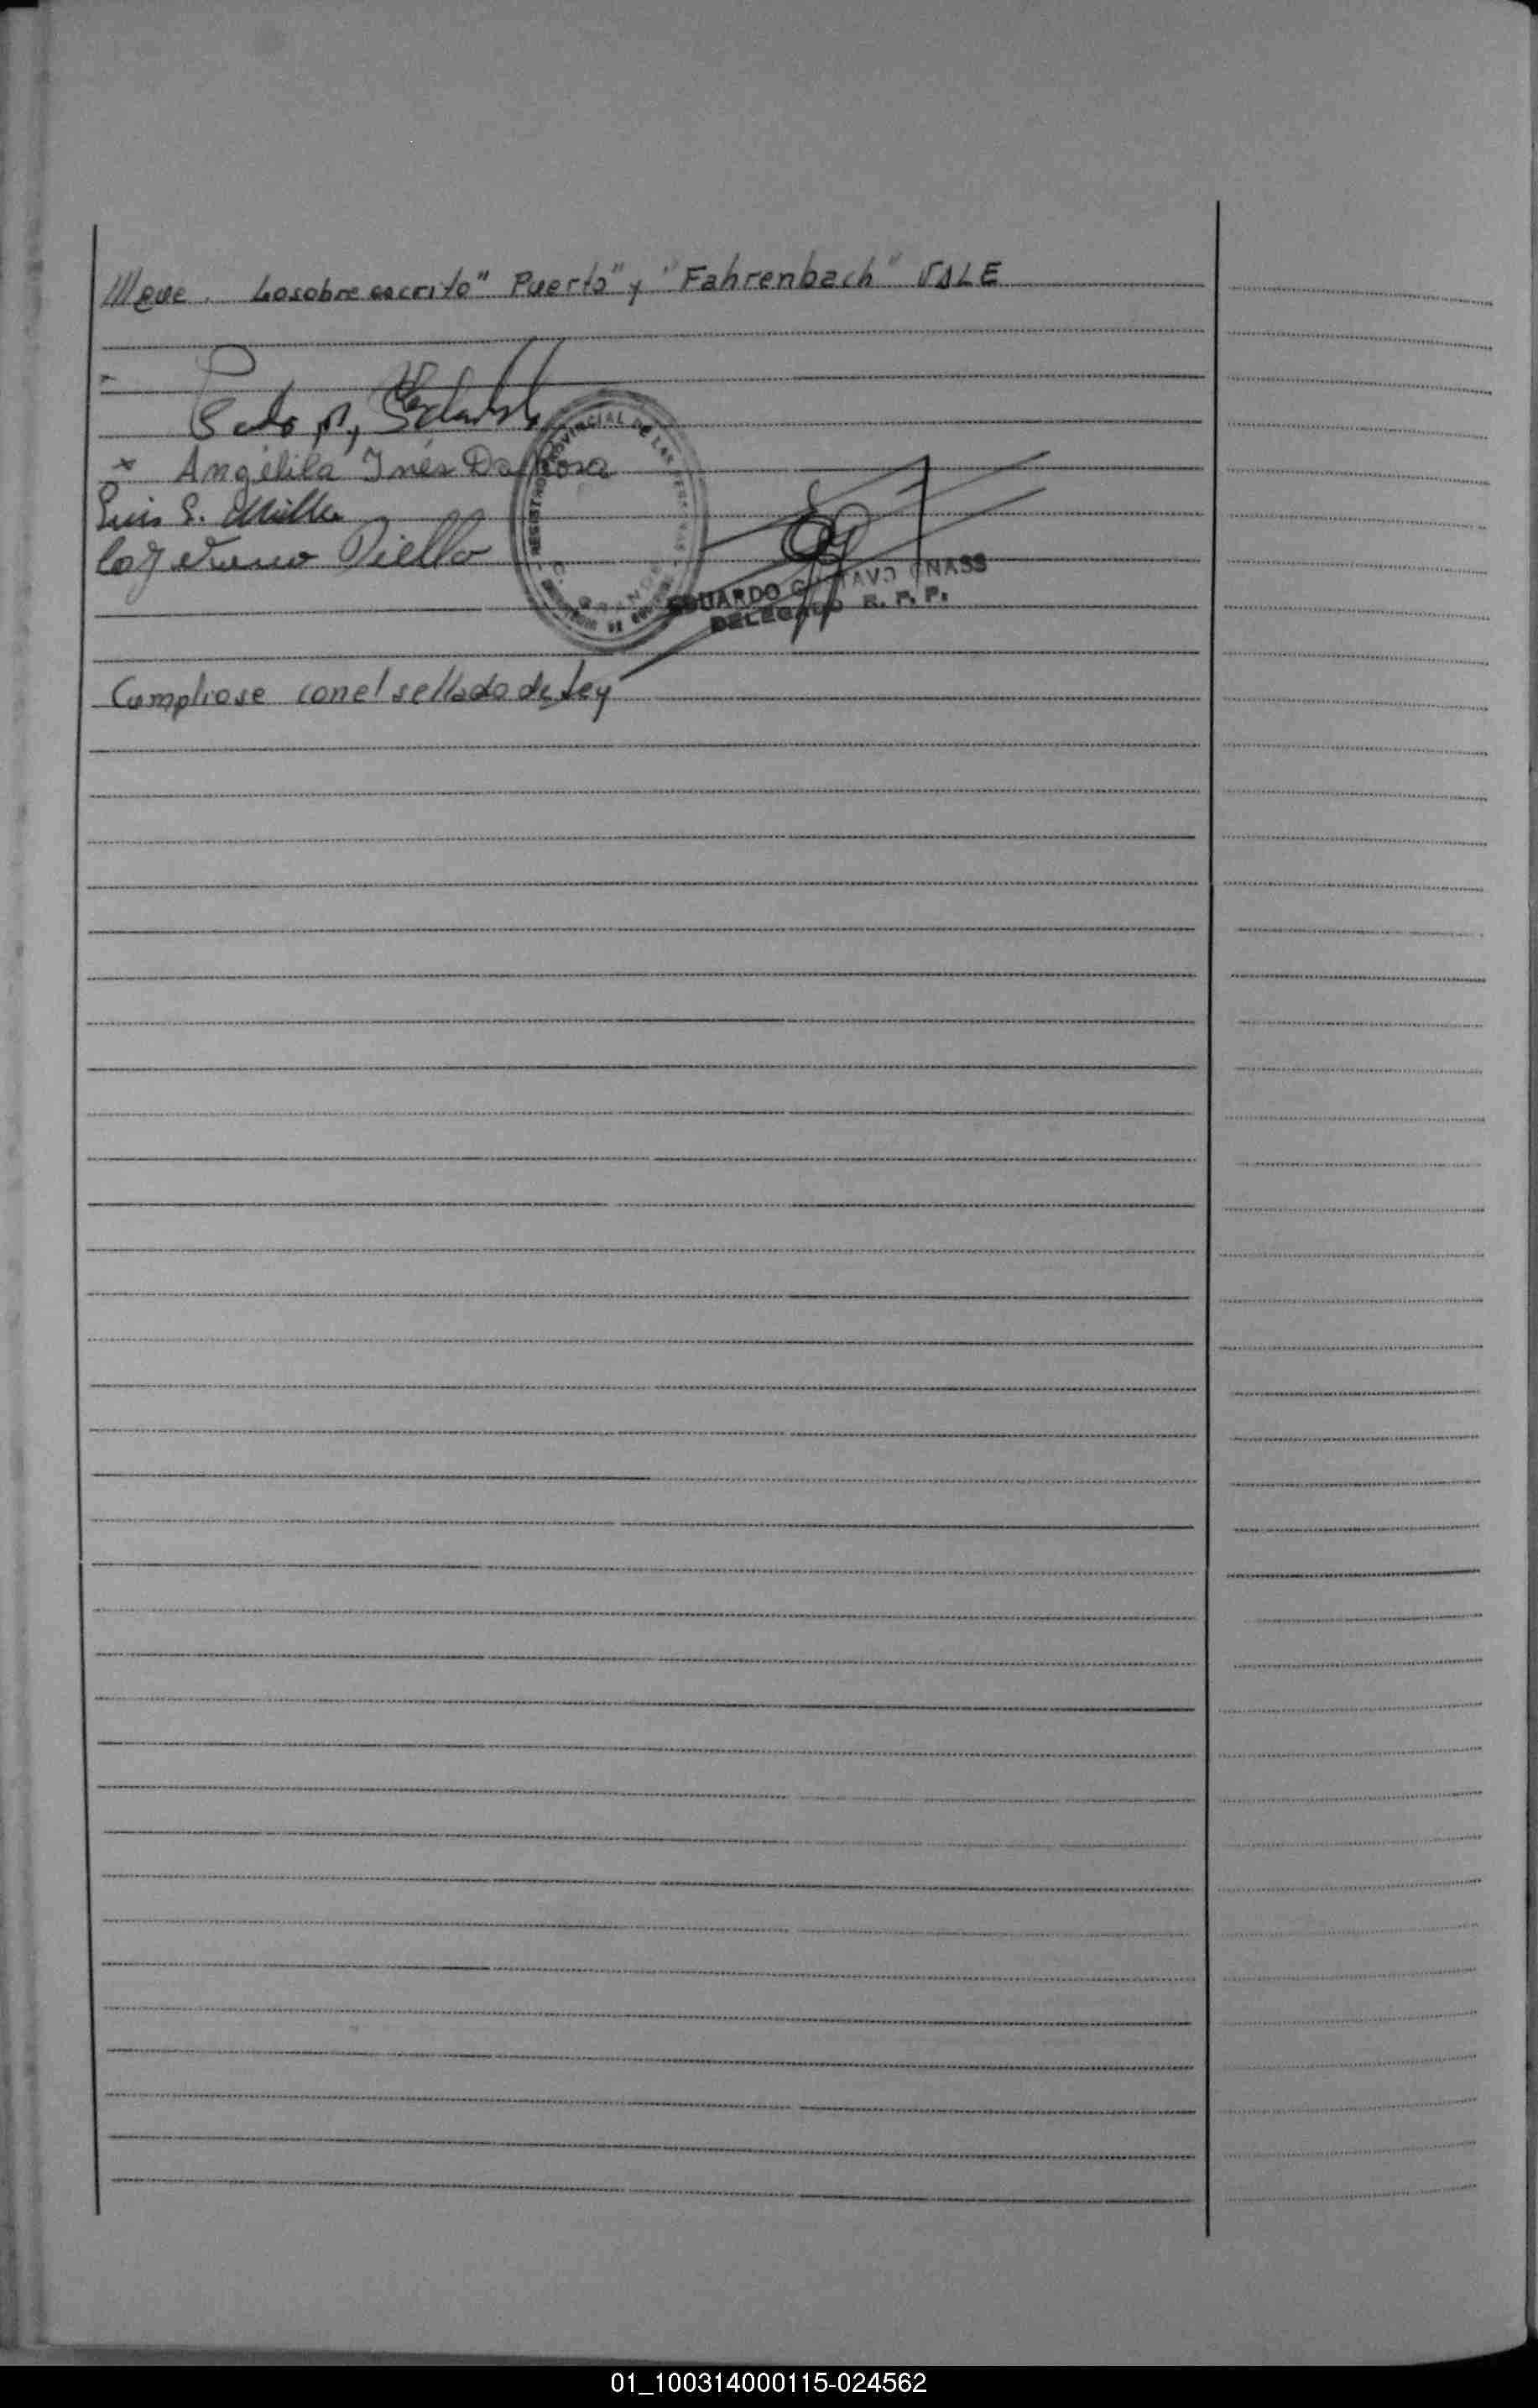 ///eve. Lo sobre escrito "Puerto" y "Fahrenbach" VALE
Angélila Inés Da Rosa
Luis S. Miller
Diello
REGISTRO PROVINCIAL DE LAS PERSONAS
EDUARDO GUSTAVO GNASS
DELEGADO R. P. P.
Cumpliose con el sellado de Ley
01_100314000115-024562